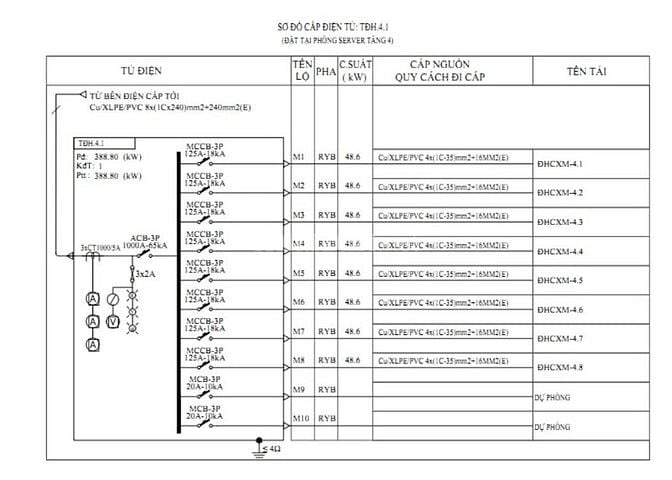 SƠ ĐỒ CẤP ĐIỆN TỦ: TĐH.4.1
(ĐẶT TẠI PHÒNG SERVER TẦNG 4)
TỦ ĐIỆN
TÊN LỘ
PHA
C.SUẤT ( kW)
CẤP NGUỒN
QUY CÁCH ĐI CÁP
TÊN TẢI
TỪ BÊN ĐIỆN CẤP TỚI
Cu/XLPE/PVC 8x(1Cx240)mm2+240mm2(E)
TĐH.4.1
Pđ: 388.80 (kW)
Kđt: 1
Ptt: 388.80 (kW)
3xCT1000/5A
ACB-3P
1000A-65kA
3x2A
A
A
A
V
MCCB-3P
125A-18kA
M1 RYB 48.6 Cu/XLPE/PVC 4x(1C-35)mm2+16MM2(E) ĐHCXM-4.1
MCCB-3P
125A-18kA
M2 RYB 48.6 Cu/XLPE/PVC 4x(1C-35)mm2+16MM2(E) ĐHCXM-4.2
MCCB-3P
125A-18kA
M3 RYB 48.6 Cu/XLPE/PVC 4x(1C-35)mm2+16MM2(E) ĐHCXM-4.3
MCCB-3P
125A-18kA
M4 RYB 48.6 Cu/XLPE/PVC 4x(1C-35)mm2+16MM2(E) ĐHCXM-4.4
MCCB-3P
125A-18kA
M5 RYB 48.6 Cu/XLPE/PVC 4x(1C-35)mm2+16MM2(E) ĐHCXM-4.5
MCCB-3P
125A-18kA
M6 RYB 48.6 Cu/XLPE/PVC 4x(1C-35)mm2+16MM2(E) ĐHCXM-4.6
MCCB-3P
125A-18kA
M7 RYB 48.6 Cu/XLPE/PVC 4x(1C-35)mm2+16MM2(E) ĐHCXM-4.7
MCCB-3P
125A-18kA
M8 RYB 48.6 Cu/XLPE/PVC 4x(1C-35)mm2+16MM2(E) ĐHCXM-4.8
MCB-3P
20A-10kA
M9 RYB DỰ PHÒNG
MCB-3P
20A-10kA
M10 RYB DỰ PHÒNG
≤ 4Ω